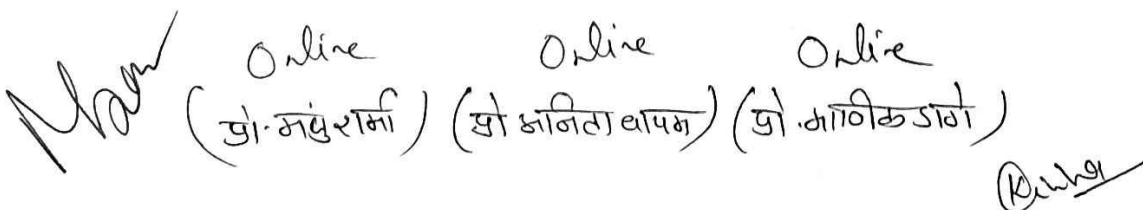 Online Online Online
(प्रो. मधु शर्मा) (प्रो अनिता थापम) (प्रो. माणिक डागे)